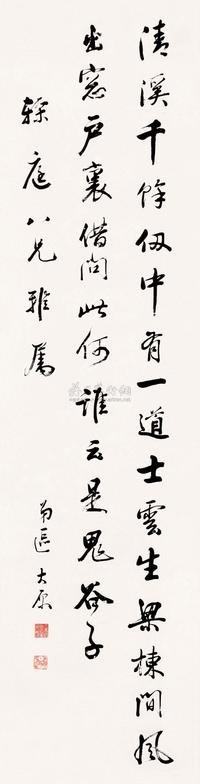 清溪千餘仞中有一道士雲生梁棟間風
出窓户裏借問此何誰云是鬼谷子
庭八兄雅屬
大原